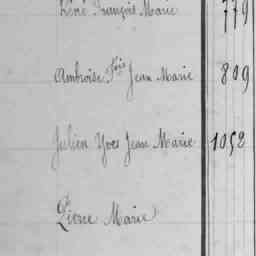 René François Marie 779
Ambroise Fois Jean Marie 809
Julien Yves Jean Marie 1052
Pierre Marie